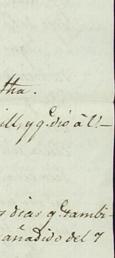 tha.
ill, y q.e dio à U.
s dias q.e tambi-
añadido del 7